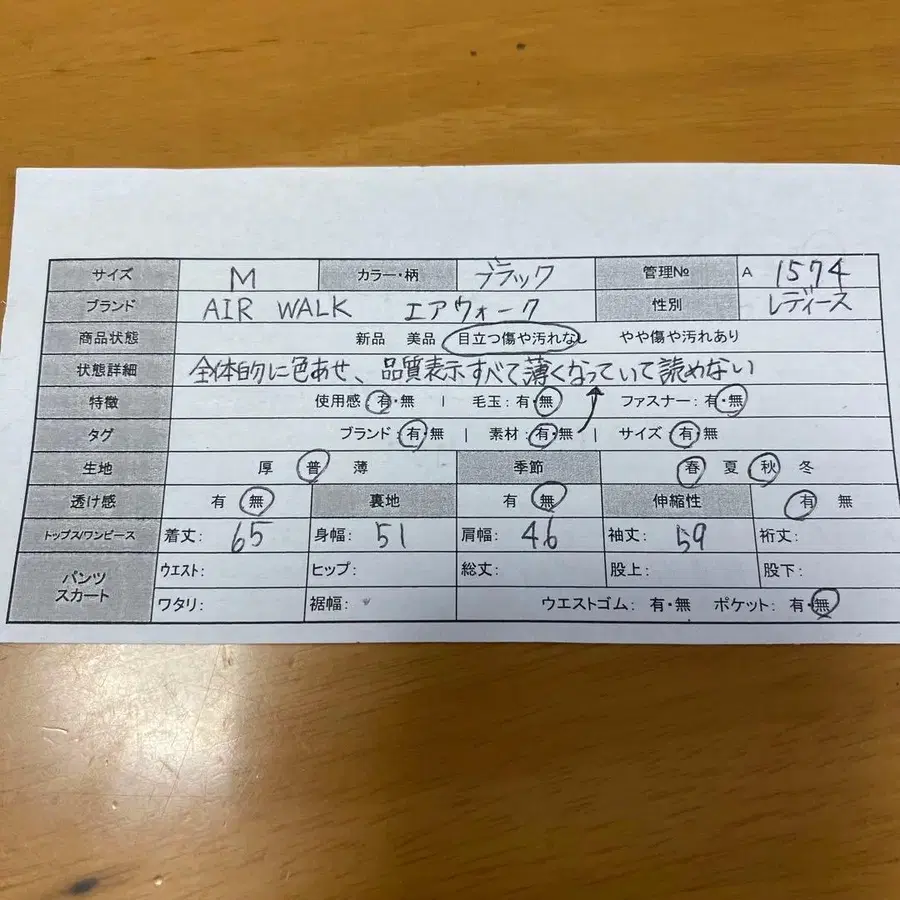 サイズ M カラー・柄 ブラック 管理№ A 1574
ブランド AIR WALK エアウォーク 性別 レディース
商品状態 新品 美品 目立つ傷や汚れなし やや傷や汚れあり
状態詳細 全体的に色あせ、品質表示すべて薄くなっていて読めない
特徴 使用感 有・無 | 毛玉: 有・無 | ファスナー: 有・無
タグ ブランド: 有・無 | 素材: 有・無 | サイズ: 有・無
生地 厚 普 薄 季節 春 夏 秋 冬
透け感 有 無 裏地 有 無 伸縮性 有 無
トップス/ワンピース 着丈: 65 身幅: 51 肩幅: 46 袖丈: 59 裄丈:
パンツ スカート ウエスト: ヒップ: 総丈: 股上: 股下:
ワタリ: 裾幅: ウエストゴム: 有・無 ポケット: 有・無